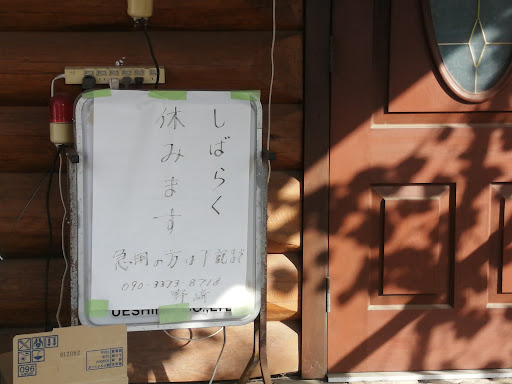 しばらく
休みます
急用の方は下記迄
090-3373-8718
野崎
UESHI